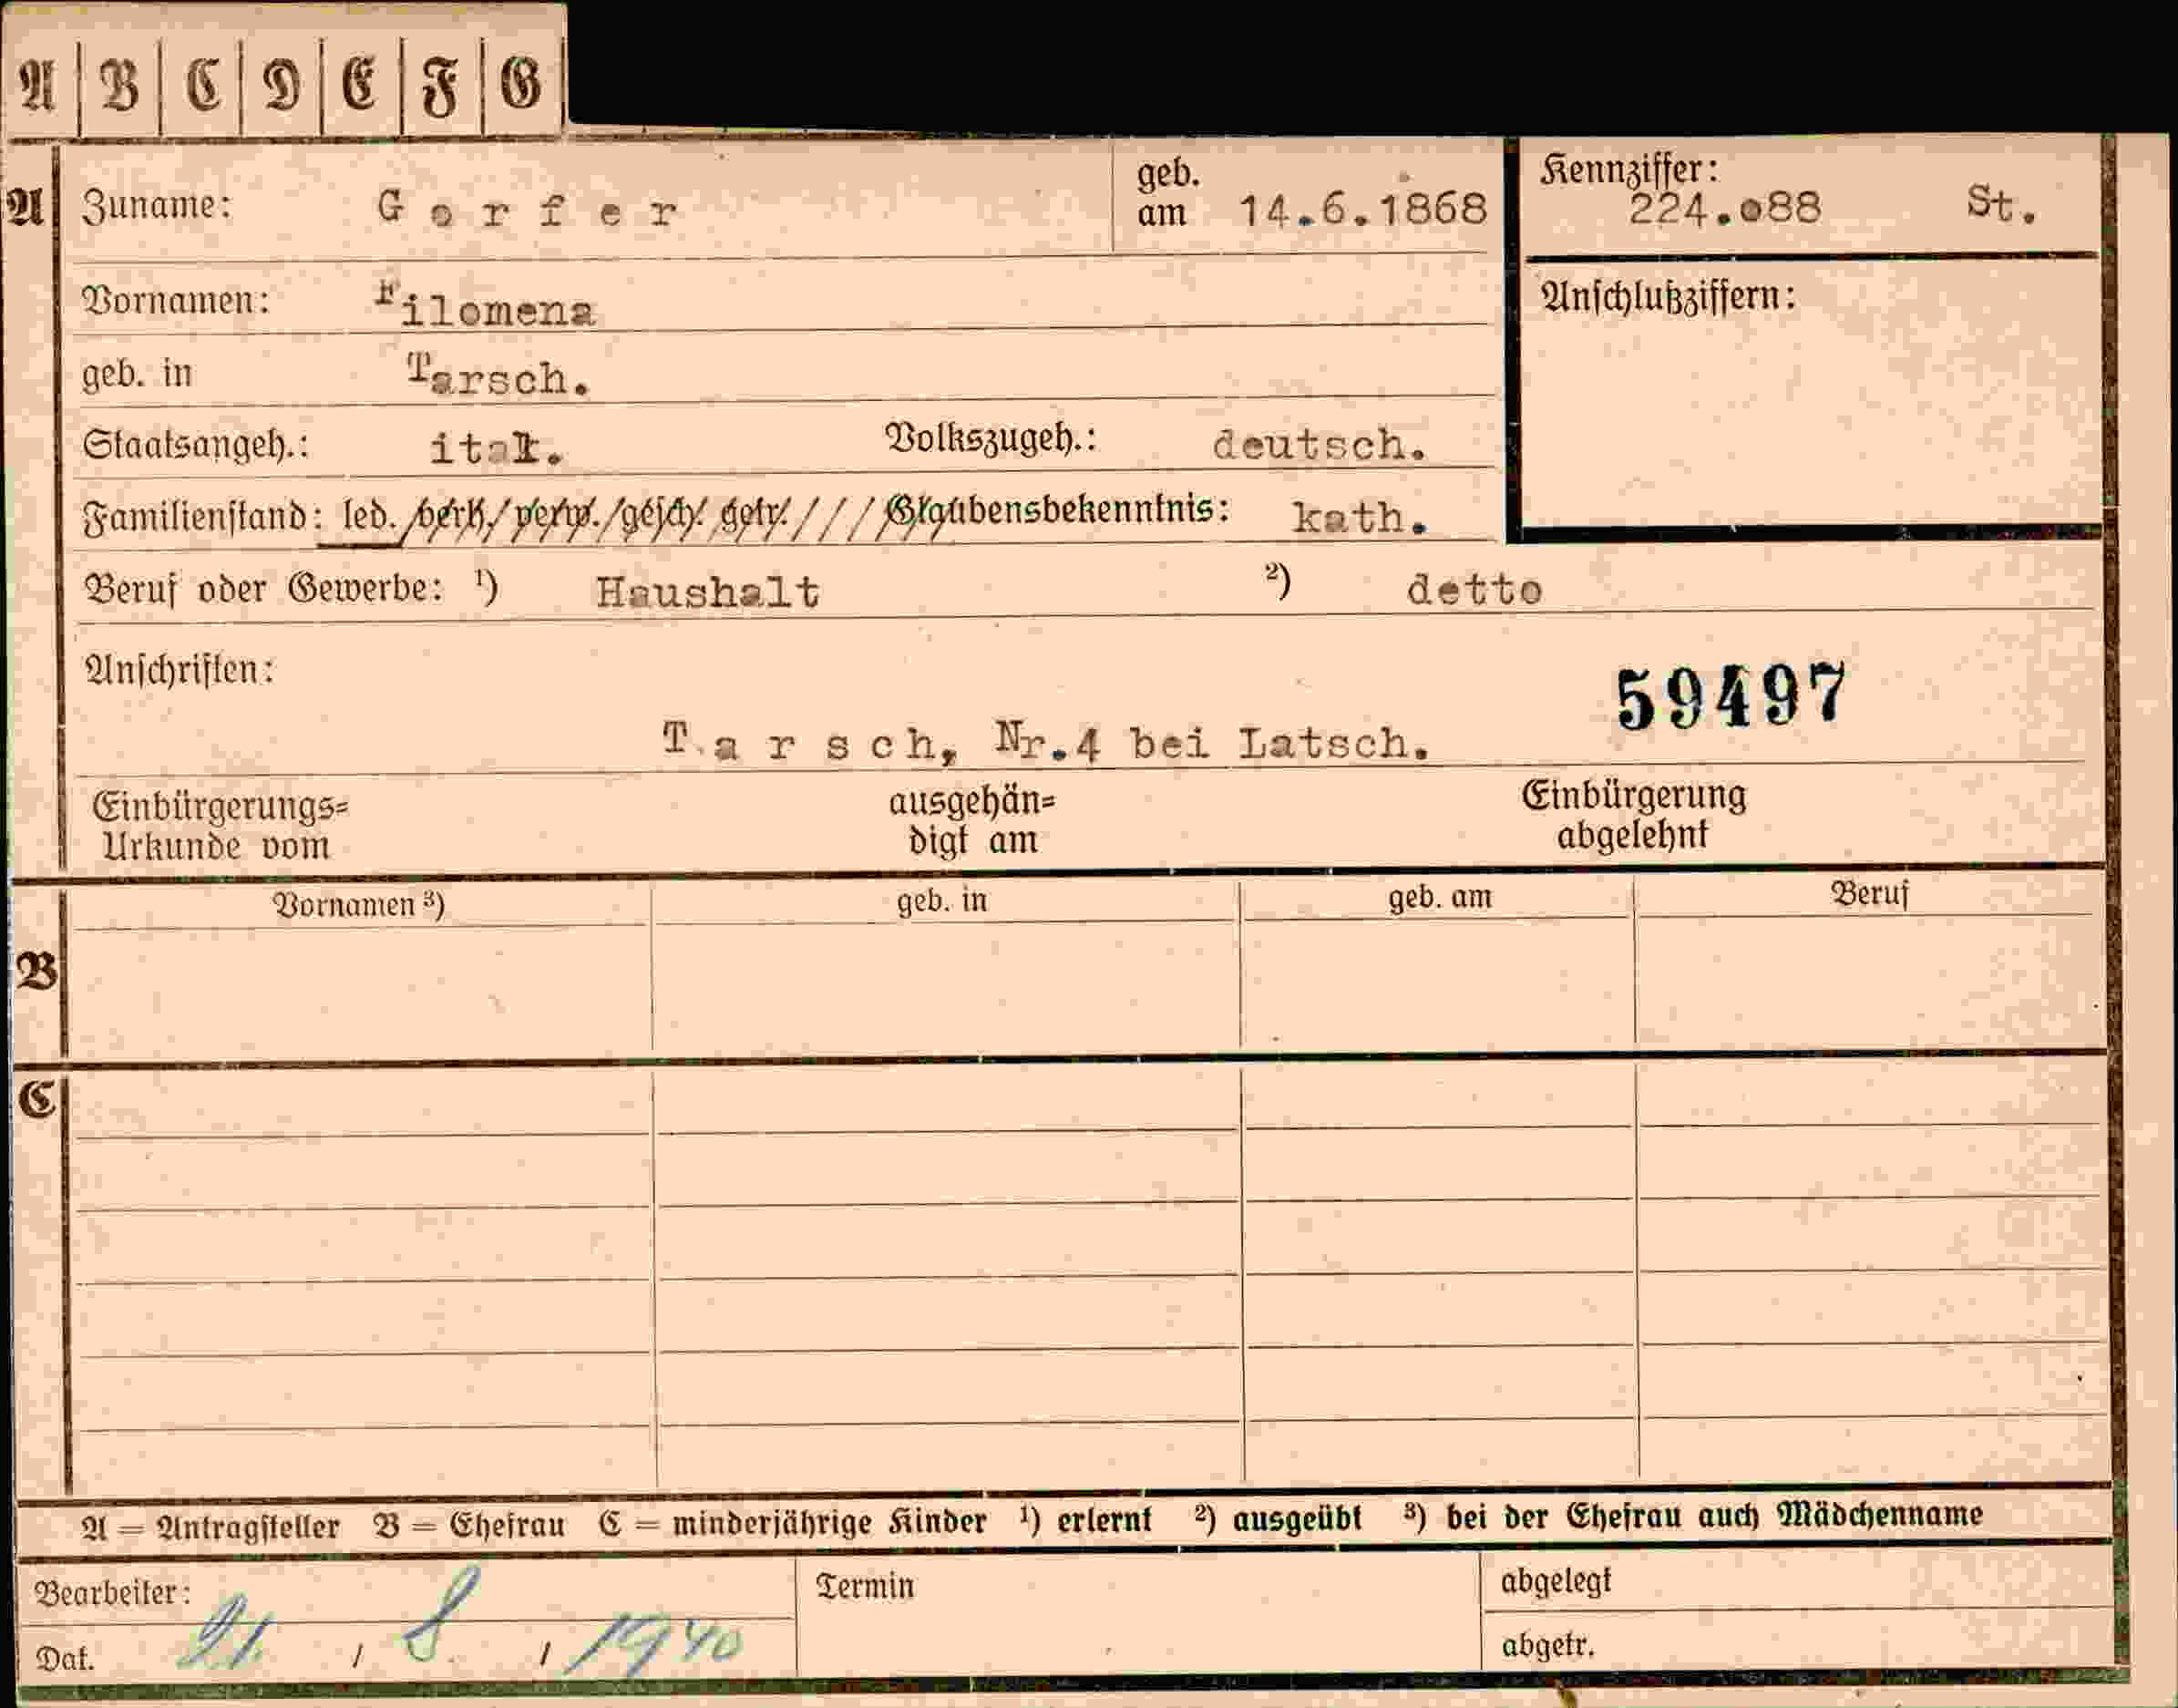 A B C D E F G
A Zuname: Gorfer geb. am 14.6.1868 Kennziffer: 224.o88 St.
Vornamen: Filomena Anschlußziffern:
geb. in Tarsch.
Staatsangeh.: ital. Volkszugeh.: deutsch.
Familienstand: led. / verh. / verw. / gesch. getr. / / / Glaubensbekenntnis: kath.
Beruf oder Gewerbe: ¹) Haushalt ²) detto
Anschriften: 59497
Tarsch, Nr.4 bei Latsch.
Einbürgerungs= ausgehän= Einbürgerung
Urkunde vom digt am abgelehnt
Vornamen ³) geb. in geb. am Beruf
B
C
A = Antragsteller B = Ehefrau C = minderjährige Kinder ¹) erlernt ²) ausgeübt ³) bei der Ehefrau auch Mädchenname
Bearbeiter: Termin abgelegt
Dat. 21. / 8. / 1940 abgetr.